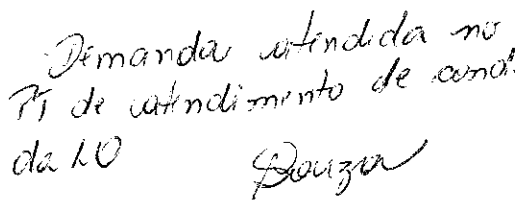 Demanda atendida no
PT de atendimento de cond.
da LO
Souza